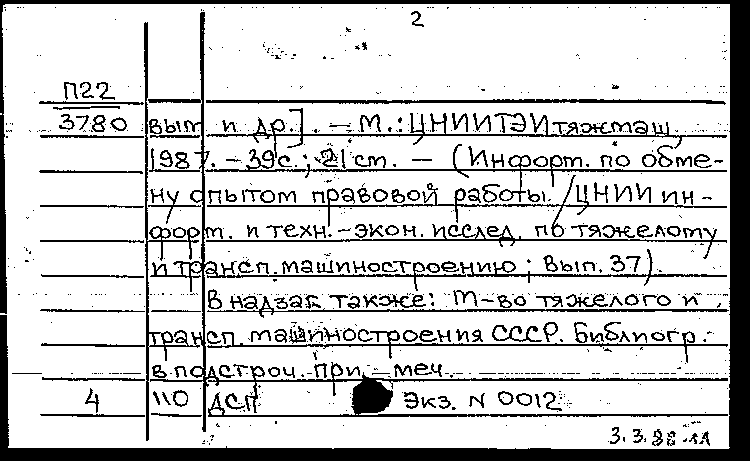 2
П22
3780 вып и др.]. – М.: ЦНИИТЭИтяжмаш,
1987. – 39с.; 21 см. – (Информ. по обме-
ну опытом правовой работы. / ЦНИИ ин-
форм. и техн.-экон. исслед. по тяжелому
и трансп. машиностроению; Вып. 37).
В надзаг. также: М-во тяжелого и
трансп. машиностроения СССР. Библиогр.
в подстроч. примеч.
4 110 ДСП Экз. N 0012
3.3.88